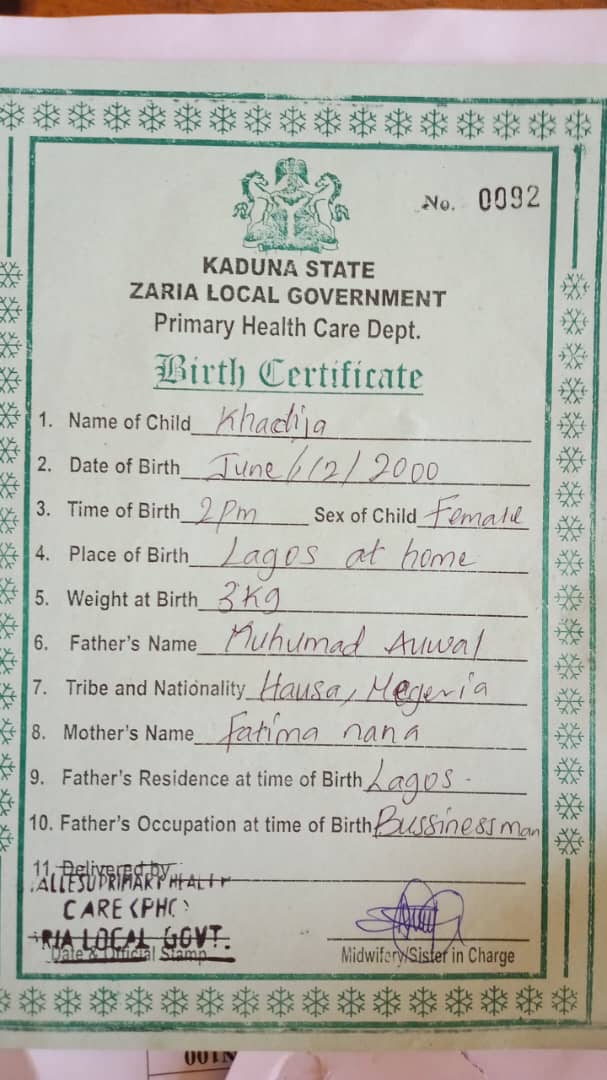 No. 0092
KADUNA STATE
ZARIA LOCAL GOVERNMENT
Primary Health Care Dept.
Birth Certificate
1. Name of Child Khadija
2. Date of Birth June/12/2000
3. Time of Birth 2pm Sex of Child Female
4. Place of Birth Lagos at home
5. Weight at Birth 3kg
6. Father's Name Muhumad Auwal
7. Tribe and Nationality Hausa, Negeria
8. Mother's Name Fatima nana
9. Father's Residence at time of Birth Lagos.
10. Father's Occupation at time of Birth Bussinessman
11. Delivered by
PRIMARY HEALT
CARE (PHC)
RIA LOCAL GOVT.
Date & Official Stamp
Midwifery/Sister in Charge